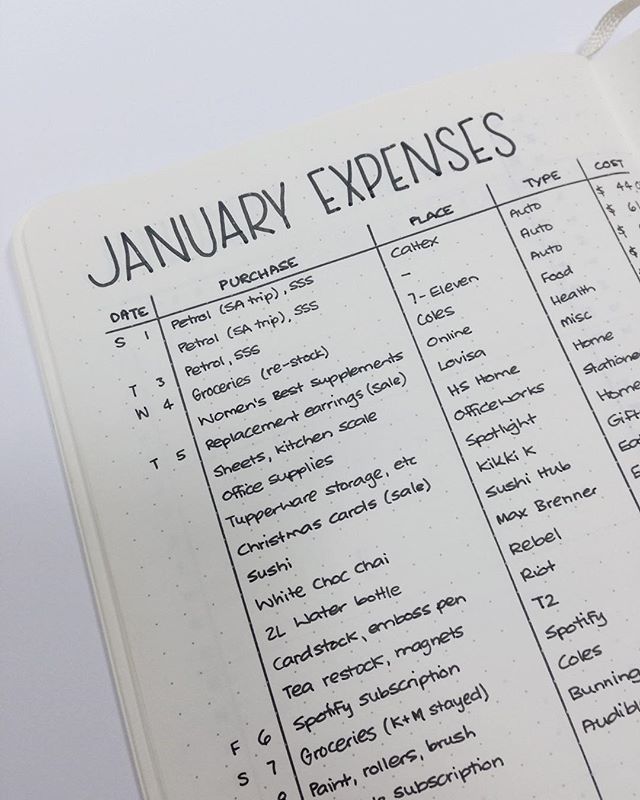 JANUARY EXPENSES
DATE PURCHASE PLACE TYPE COST
S 1 Petrol (SA trip), SSS Caltex Auto $ 44
Petrol (SA trip), SSS – Auto $ 61
T 3 Petrol, SSS 7-Eleven Auto $
W 4 Groceries (re-stock) Coles Food $
Women's Best supplements Online Health
T 5 Replacement earrings (sale) Lovisa Misc
Sheets, kitchen scale HS Home Home
Office supplies Officeworks Statione
Tupperware storage, etc Spotlight Home
Christmas cards (sale) Kikki K Gift
Sushi Sushi Hub Ea
White choc chai Max Brenner Ea
2L water bottle Rebel
Cardstock, emboss pen Riot
Tea restock, magnets T2
F 6 Spotify subscription Spotify
S 7 Groceries (K+M stayed) Coles
8 Paint, rollers, brush Bunning
subscription Audibl